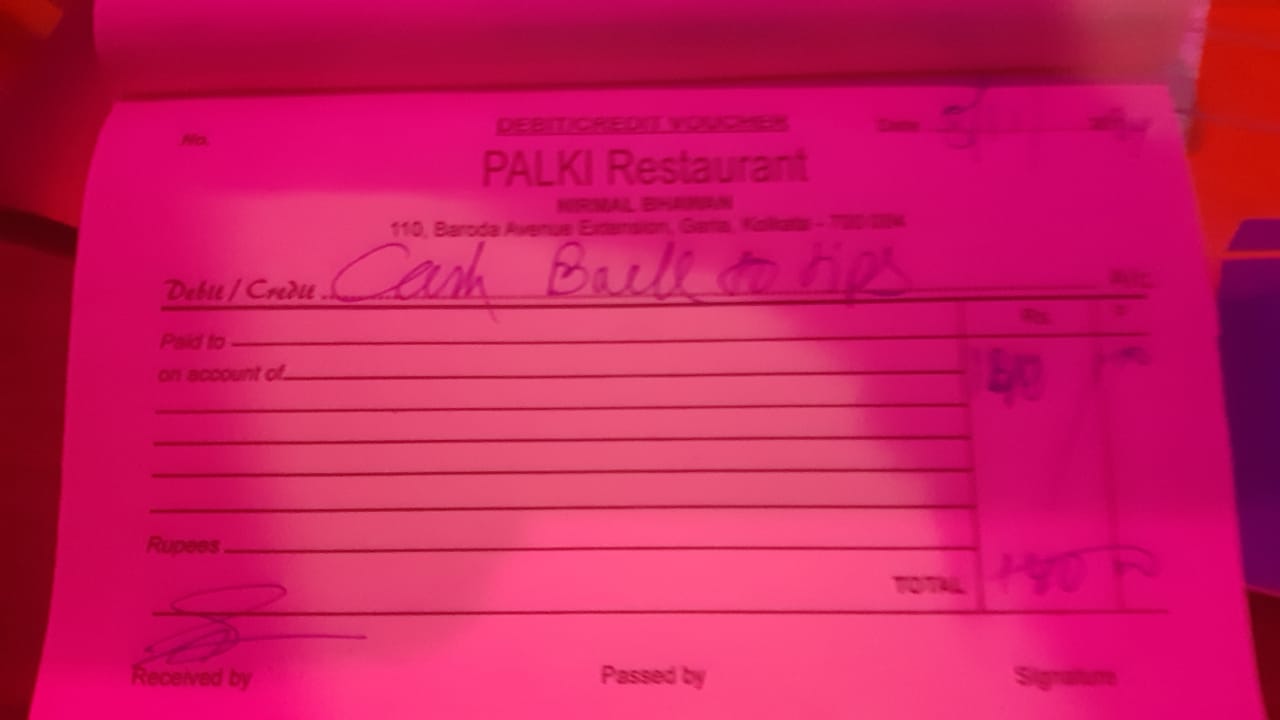 No. DEBIT/CREDIT VOUCHER Date
PALKI Restaurant
NIRMAL BHAWAN
110, Baroda Avenue Extension, Garia, Kolkata - 700 084
Debit / Credit Cash Back to tips A/c
Rs. P.
Paid to
on account of
Rupees
TOTAL
Received by Passed by Signature